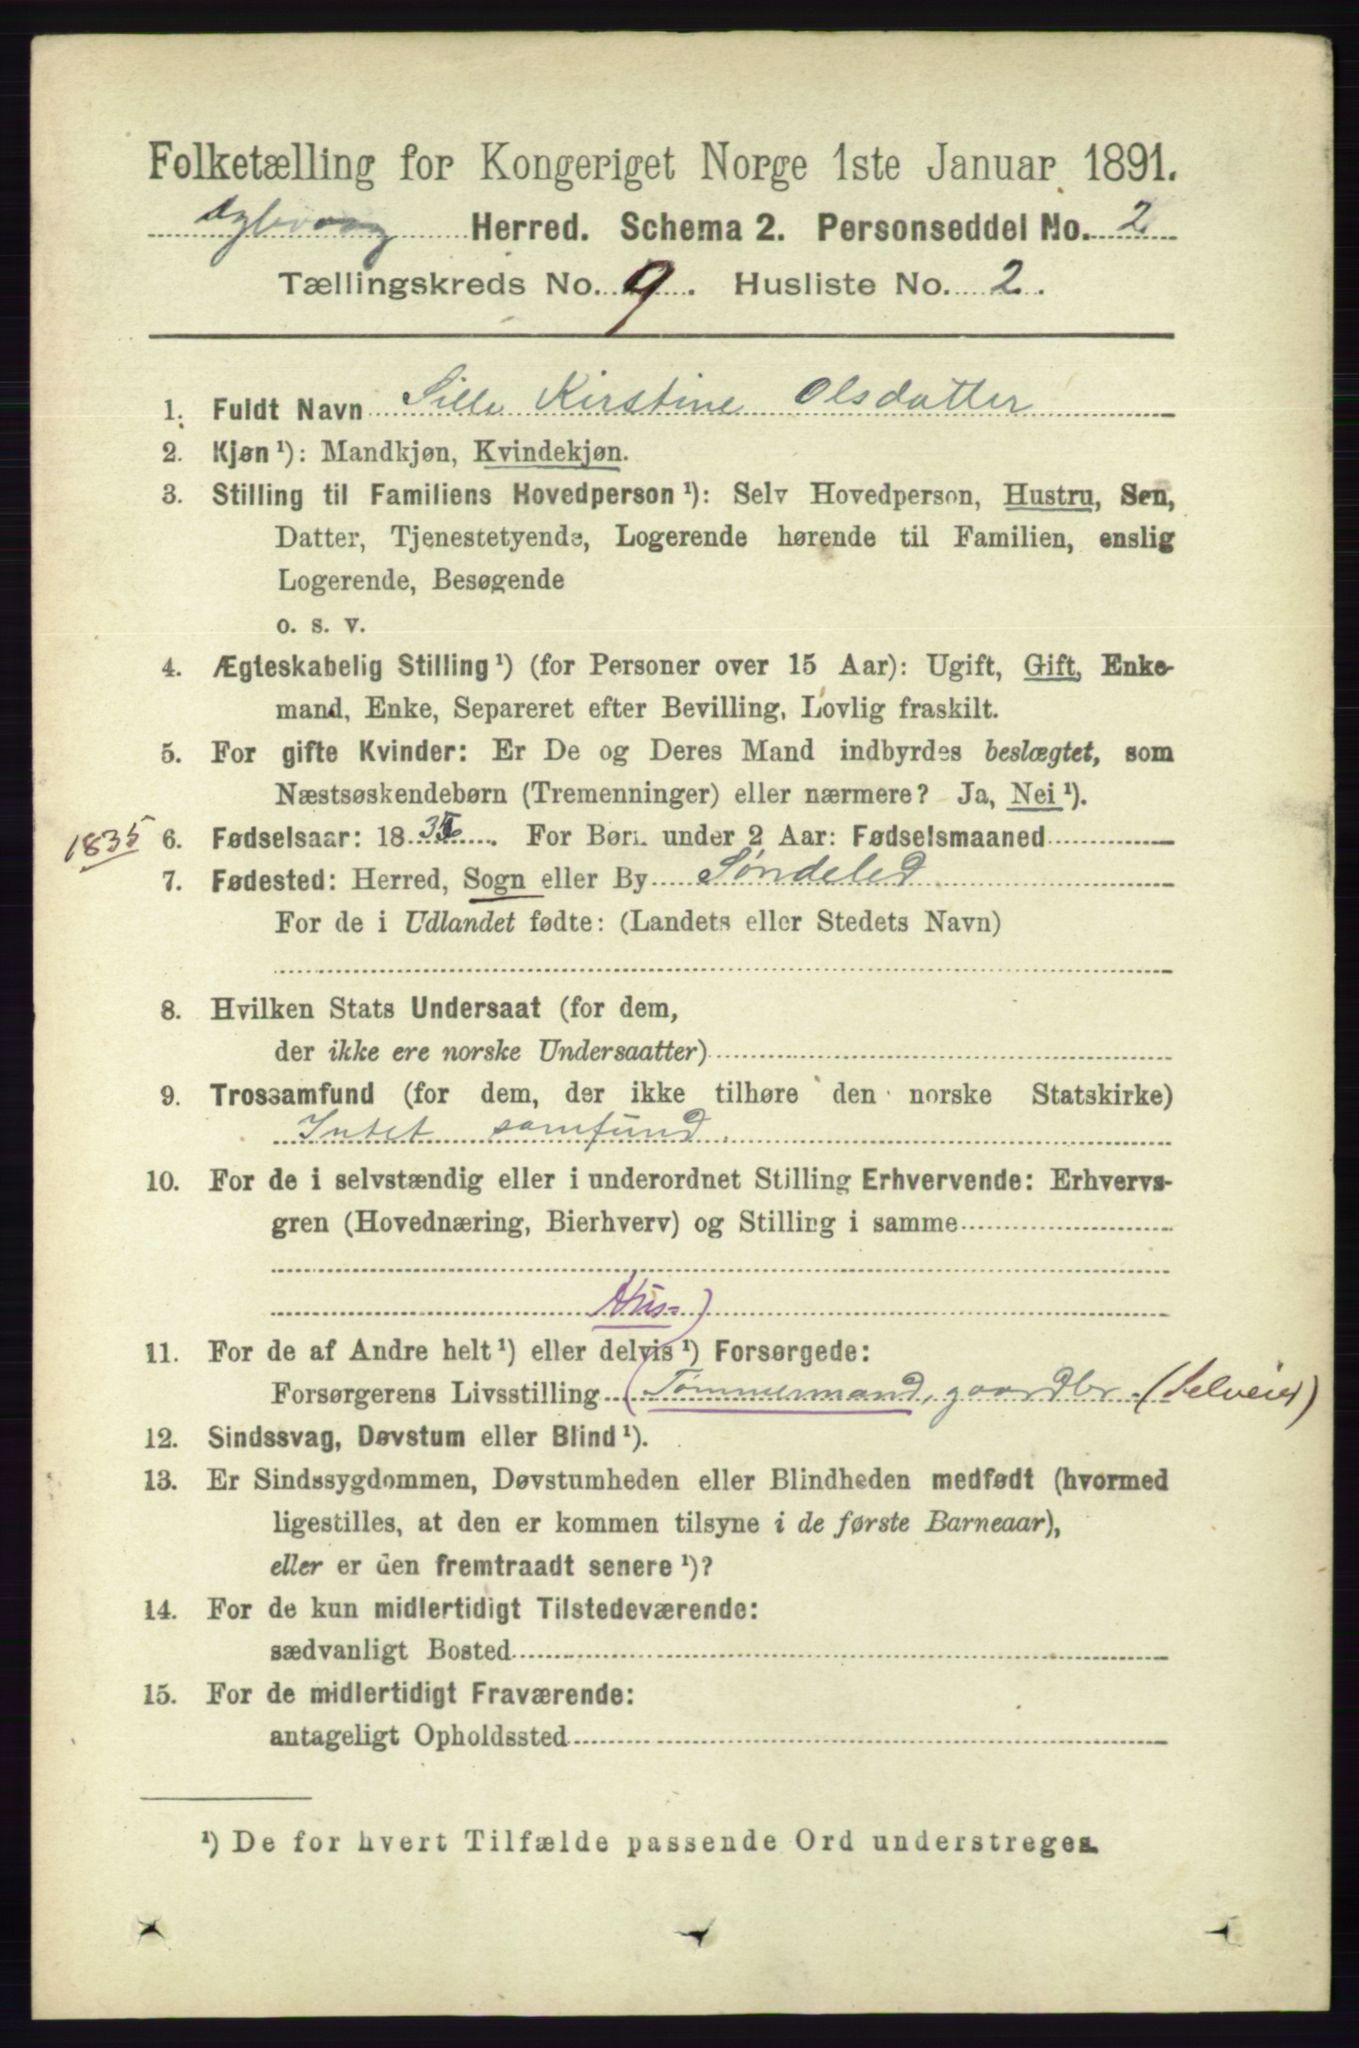 Folketælling for Kongeriget Norge 1ste Januar 1891.
Herred. Schema 2. Personseddel No. 2
Tællingskreds No. 9. Husliste No. 2.
1. Fuldt Navn Sille Kirstine Olsdatter
2. Kjøn ¹): Mandkjøn, Kvindekjøn.
3. Stilling til Familiens Hovedperson ¹): Selv Hovedperson, Hustru, Søn,
Datter, Tjenestetyende, Logerende hørende til Familien, enslig
Logerende, Besøgende
o. s. v.
4. Ægteskabelig Stilling ¹) (for Personer over 15 Aar): Ugift, Gift, Enke-
mand, Enke, Separeret efter Bevilling, Lovlig fraskilt.
5. For gifte Kvinder: Er De og Deres Mand indbyrdes beslægtet, som
Næstsøskendebørn (Tremenninger) eller nærmere? Ja, Nei ¹).
1835 6. Fødselsaar: 1835. For Børn under 2 Aar: Fødselsmaaned
7. Fødested: Herred, Sogn eller By Søndeled
For de i Udlandet fødte: (Landets eller Stedets Navn)
8. Hvilken Stats Undersaat (for dem,
der ikke ere norske Undersaatter)
9. Trossamfund (for dem, der ikke tilhøre den norske Statskirke)
Intet samfund
10. For de i selvstændig eller i underordnet Stilling Erhvervende: Erhvervs-
gren (Hovednæring, Bierhverv) og Stilling i samme
Hus=)
11. For de af Andre helt ¹) eller delvis ¹) Forsørgede:
Forsørgerens Livsstilling (Tømmermand, gaardbr. (Selveier)
12. Sindssvag, Døvstum eller Blind ¹).
13. Er Sindssygdommen, Døvstumheden eller Blindheden medfødt (hvormed
ligestilles, at den er kommen tilsyne i de første Barneaar),
eller er den fremtraadt senere ¹)?
14. For de kun midlertidigt Tilstedeværende:
sædvanligt Bosted
15. For de midlertidigt Fraværende:
antageligt Opholdssted
¹) De for hvert Tilfælde passende Ord understreges.